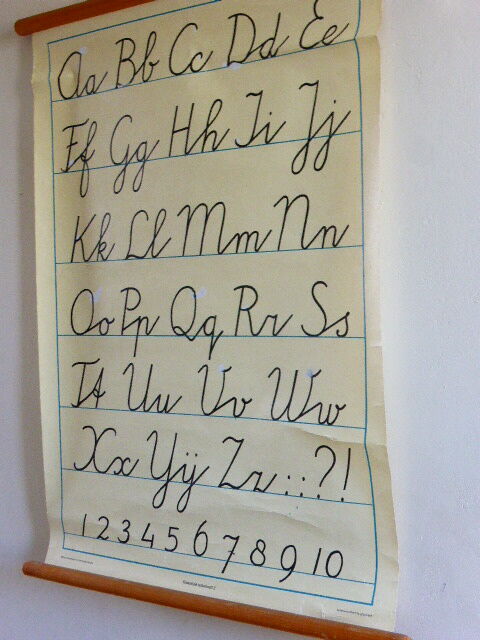 Aa Bb Cc Dd Ee
Ff Gg Hh Ii Jj
Kk Ll Mm Nn
Oo Pp Qq Rr Ss
Tt Uu Vv Ww
Xx Yÿ Zz : : ? !
1 2 3 4 5 6 7 8 9 10